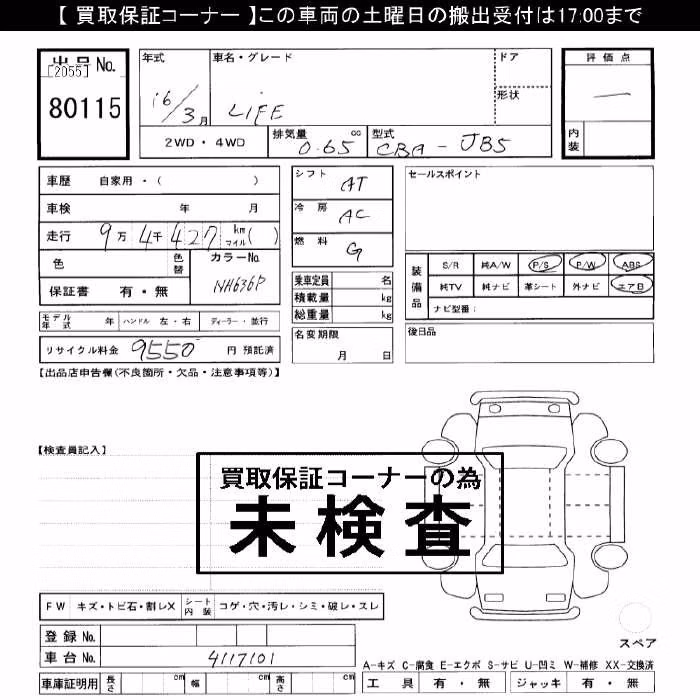 【 買取保証コーナー 】この車両の土曜日の搬出受付は17:00まで
出品No. [2055] 80115
年式 16/3月
車名・グレード LIFE
ドア
形状
2WD・4WD
排気量 cc 0.65
型式 CBA-JB5
評価点 —
内装
車歴 自家用・( )
車検 年 月
走行 9万4千427 km マイル( )
色 色替 カラーNo. NH636P
保証書 有・無
モデル年式 年 ハンドル 左・右 ディーラー・並行
リサイクル料金 9550 円 預託済
シフト AT
冷房 AC
燃料 G
乗車定員 名
積載量 kg
総重量 kg
名変期限 月 日
セールスポイント
装備品 S/R 純A/W P/S P/W ABS
純TV 純ナビ 革シート 外ナビ エアB
ナビ型番:
後日品
【出品店申告欄(不良箇所・欠品・注意事項等)】
【検査員記入】
買取保証コーナーの為
未検査
FW キズ・トビ石・割レX シート内装 コゲ・穴・汚レ・シミ・破レ・スレ
登録No.
車台No. 4117101
車庫証明用 長さ cm 幅 cm 高さ cm
スペア
A-キズ C-腐食 E-エクボ S-サビ U-凹ミ W-補修 XX-交換済
工具 有・無 ジャッキ 有・無